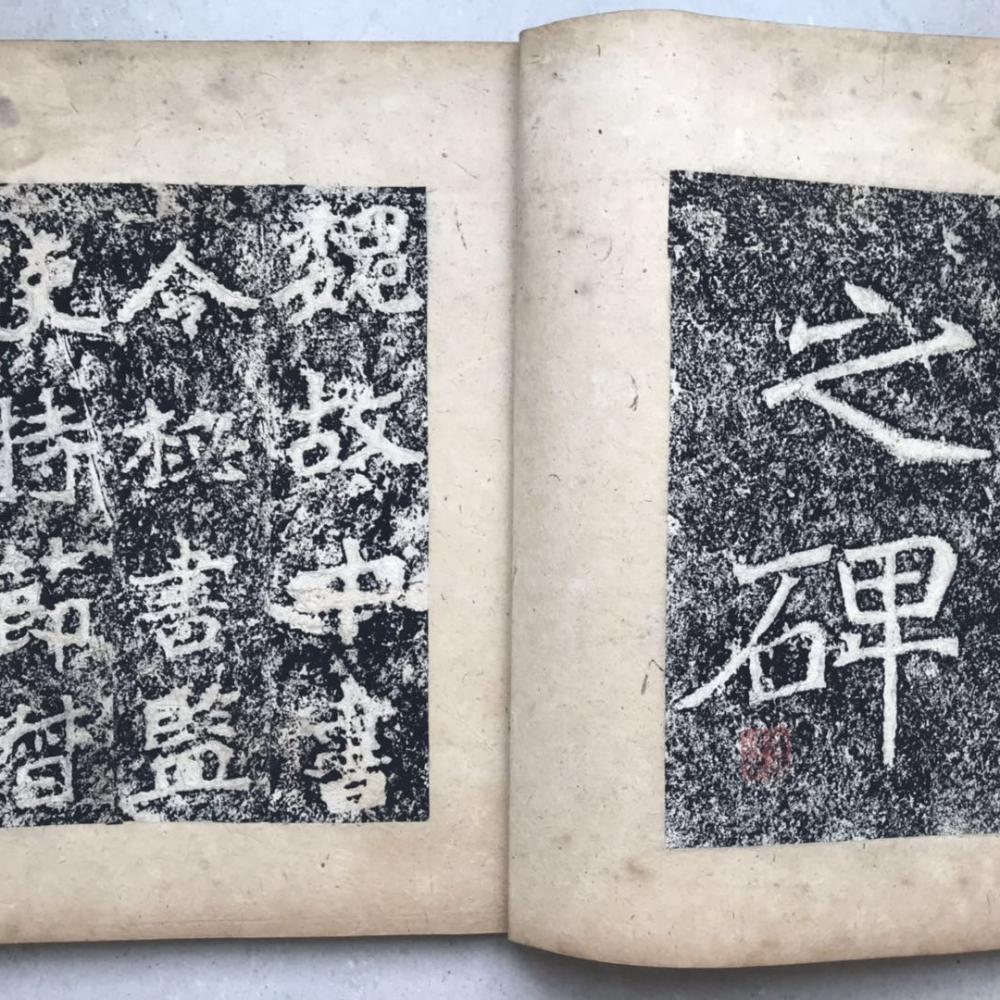 之碑
魏故中書
令秘書監
使持節督